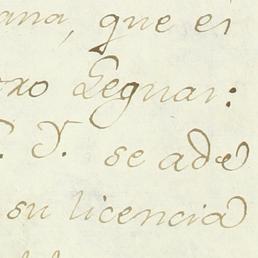 ana, que es
oxo Legnar:
. D. se ade
su licencia